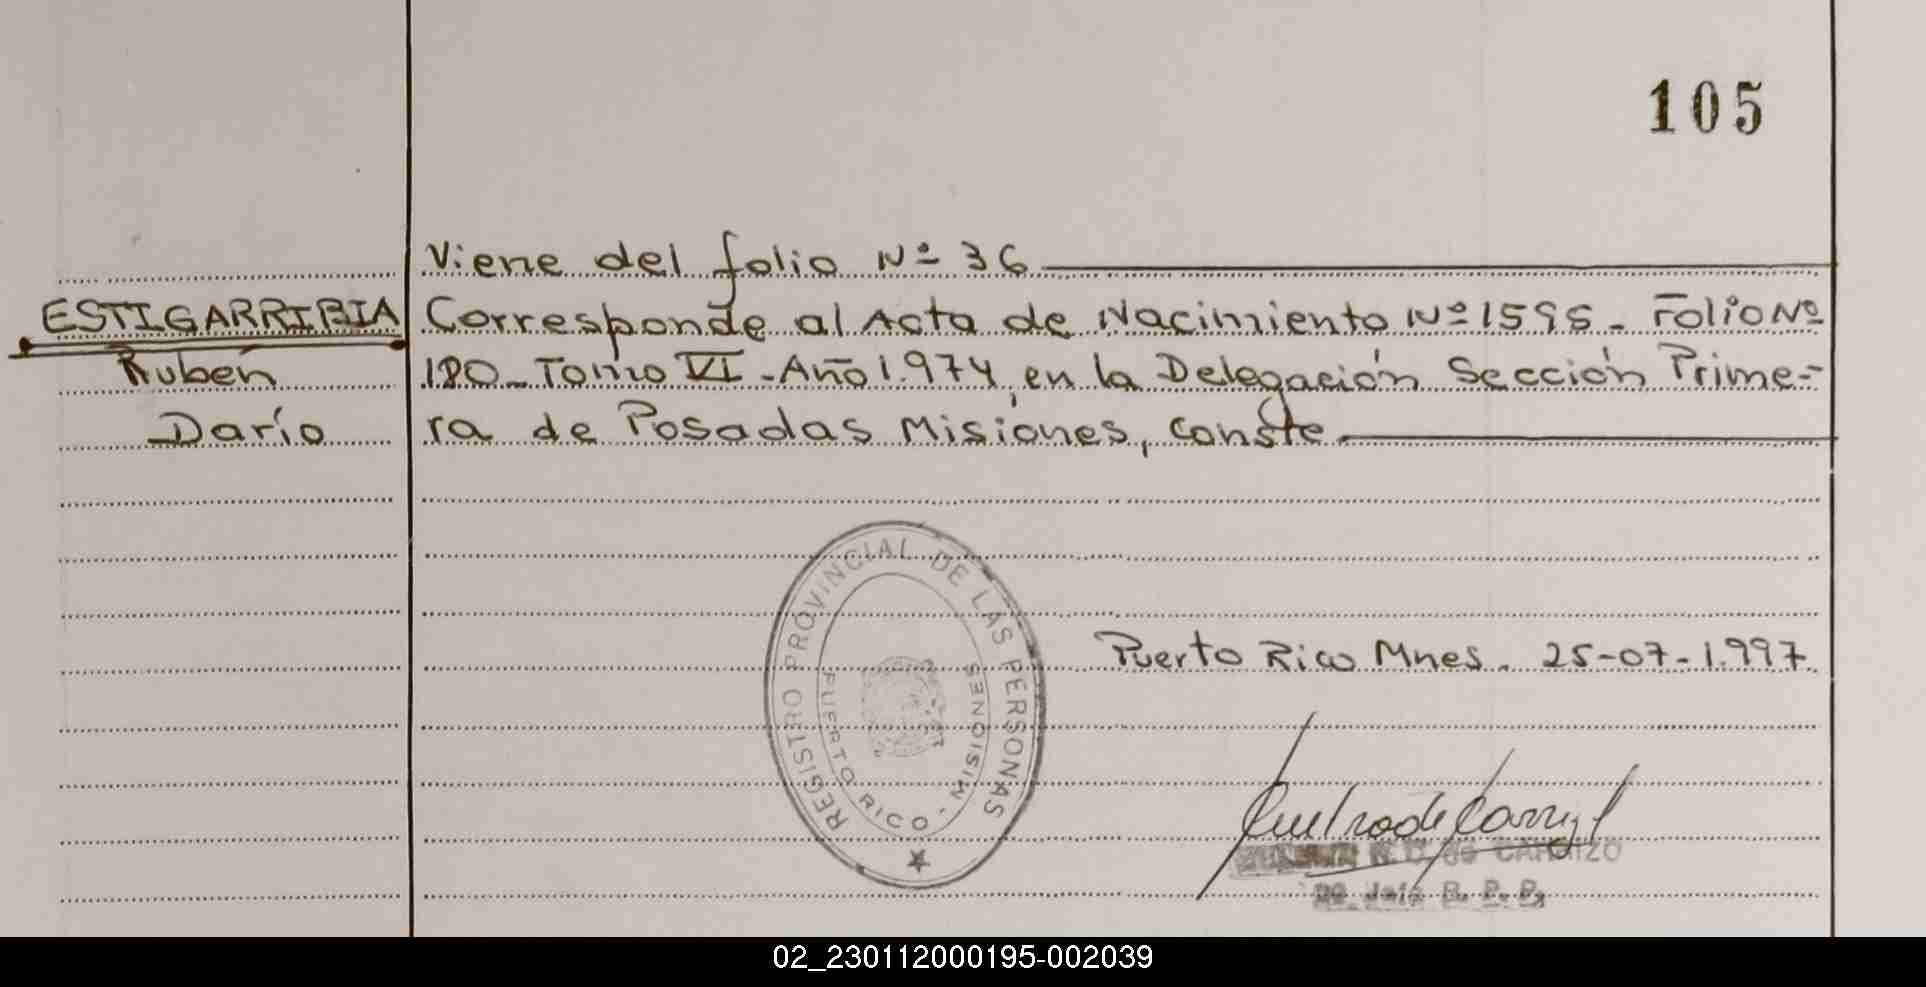 105
Viene del folio Nº 36
ESTIGARRIBIA
Corresponde al Acta de Nacimiento Nº 1595 - Folio Nº
Ruben
180 - Tomo VI - Año 1.974, en la Delegación Sección Prime-
Darío
ra de Posadas Misiones, conste.
REGISTRO PROVINCIAL DE LAS PERSONAS
PUERTO RICO - MISIONES
Puerto Rico Mnes. 25-07-1.997
de CARRIZO
Jefe R. P. P.
02_230112000195-002039